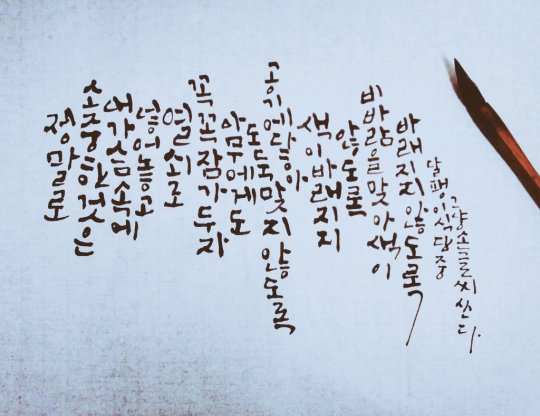 정말로
소중한것은
내가슴속에
넣어놓고
열쇠로
꼭꼭잠가두자
아무에게도
도둑맞지않도록
공기에닿아
색이바래지지
않도록
비바람을맞아색이
바래지지않도록
달팽이식당중
그냥손글씨산다.